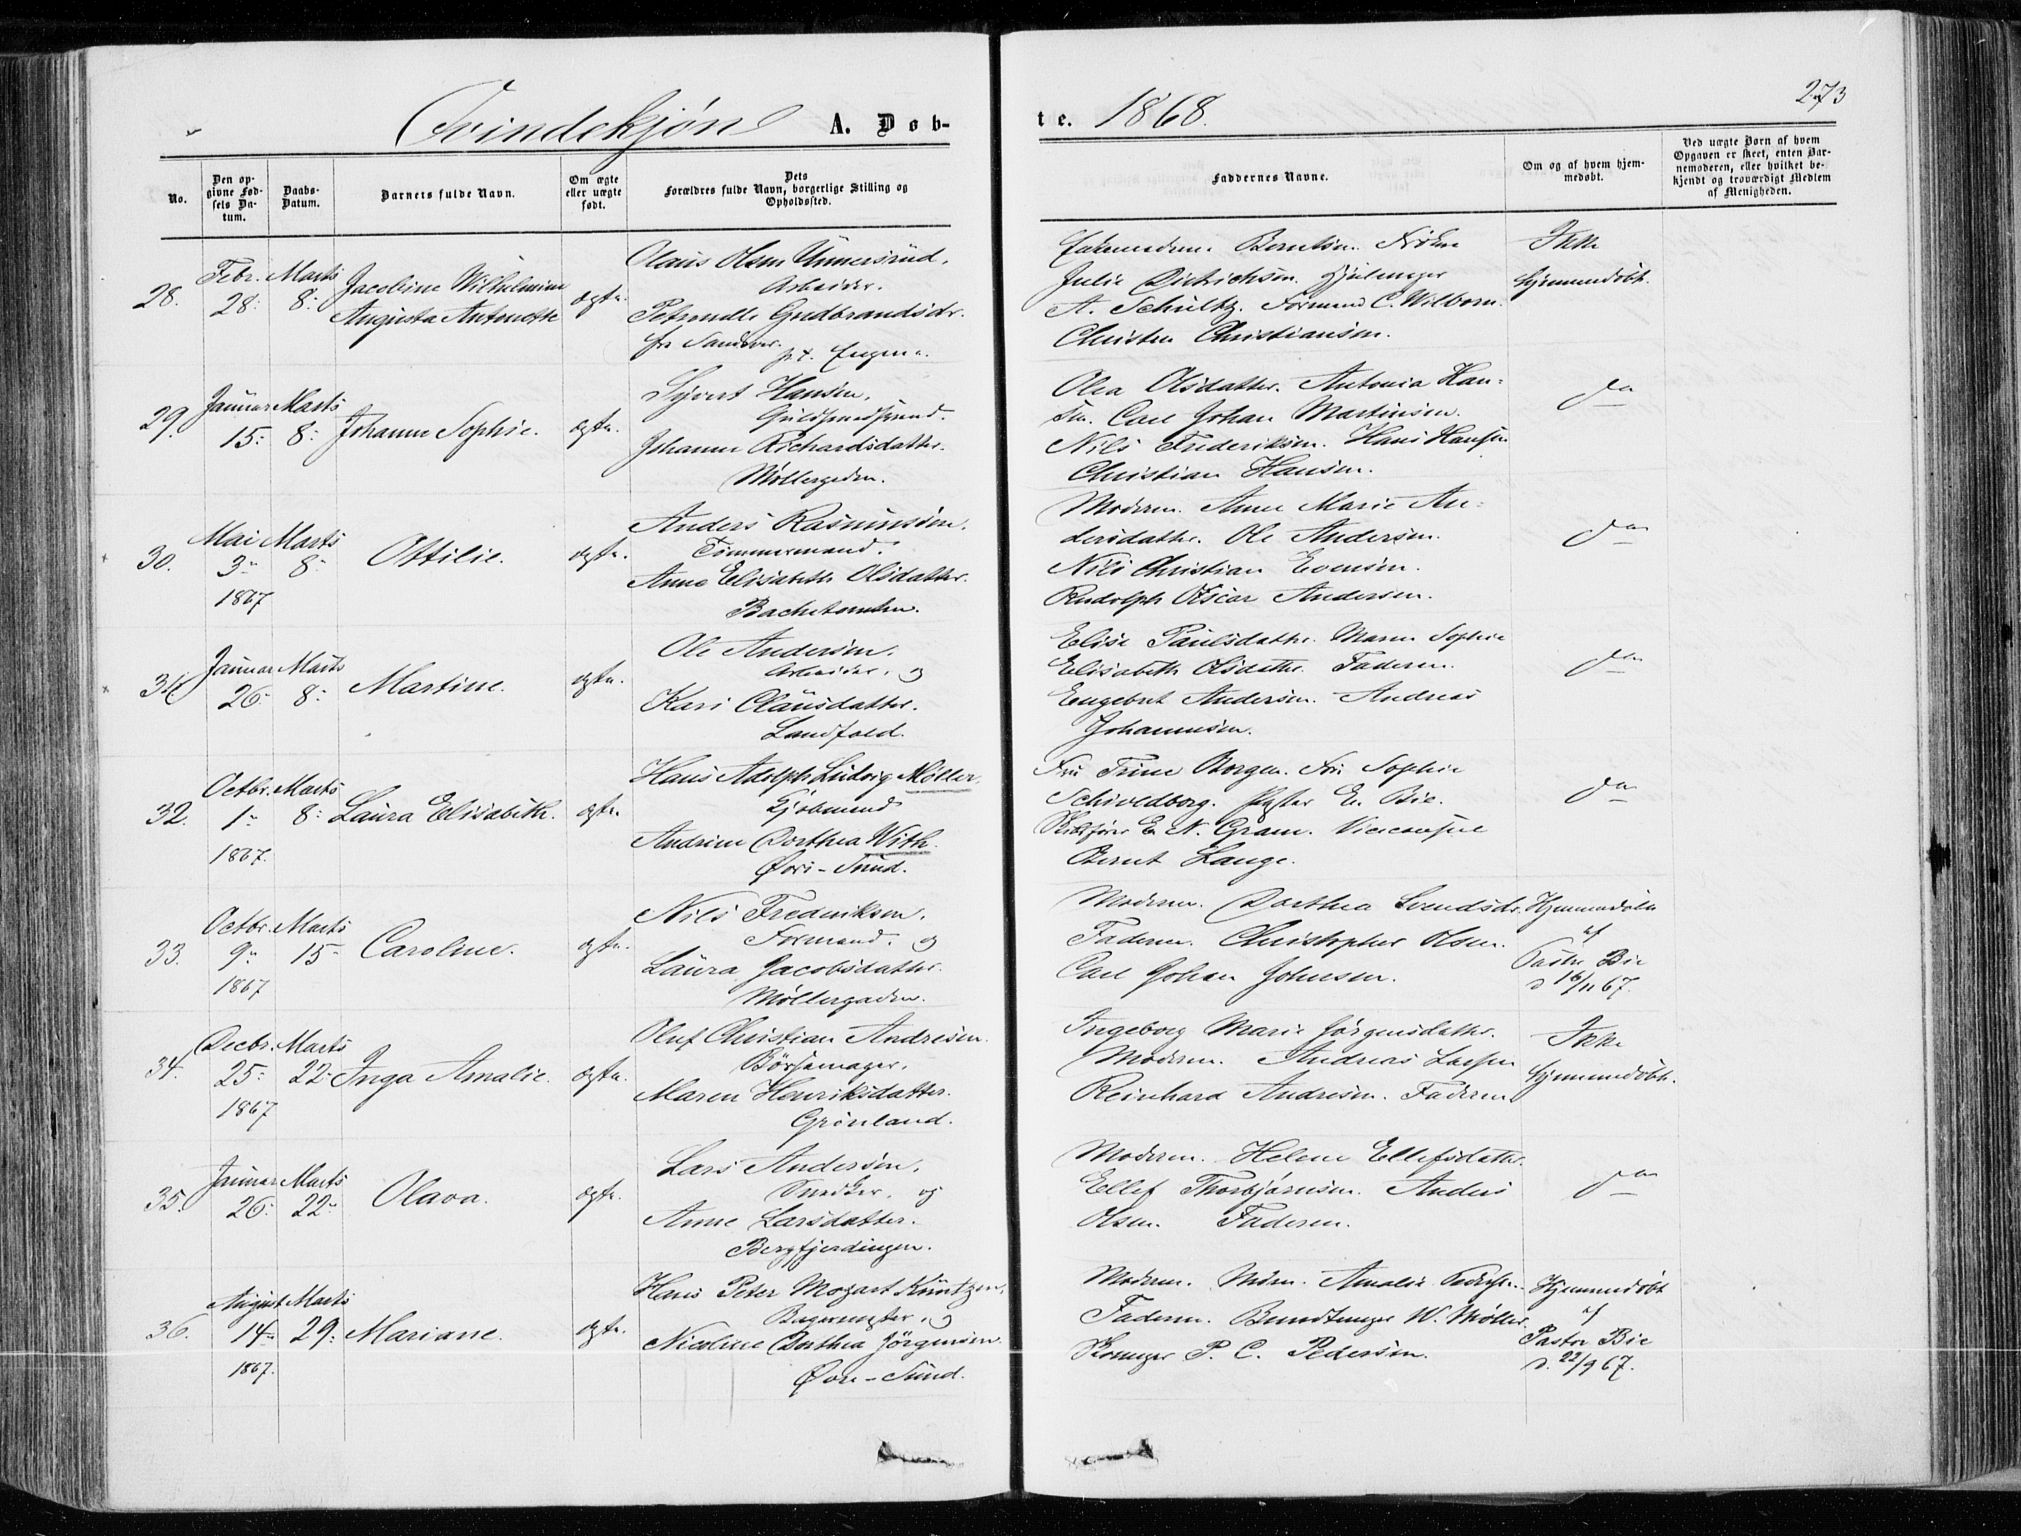 Qvindekjøn A. Døb-
te. 1868.
273
No.
Den op-
givne Fød-
sels Da-
tum.
Daabs-
Datum.
Barnets fulde Navn.
Om ægte
eller uægte
født.
Dets
Forældres fulde Navn, borgerlige Stilling og
Opholdssted.
Faddernes Navne.
Om og af hvem hjem-
medøbt.
Ved uægte Børn af hvem
Opgaven er skeet, enten Bar-
nemoderen, eller hvilket be-
kjendt og troværdigt Medlem
af Menigheden.
28.
Febr.
28:
Marts
8:
Jacobine Wilhelmine
Augusta Antonette
ægte.
Olaus Olsen Unnersrud.
Arbeider.
Petronelle Gudbrandsdr.
fra Sandsvær. p.t. Engene.
Berntsen. Frøken
Julie Dietrichsen.
A. Schultz. Formand C. Wilborn.
Christen Christiansen.
Ikke
hjemmedøbt.
29.
Januar
15:
Marts
8:
Johanne Sophie.
ægte.
Syvert Hansen,
Guldsmedsvend.
Johanne Richardsdatter.
Møllergaden.
Olea Olsdatter. Antonia Han-
sen. Carl Johan Martinsen.
Nils Frederiksen. Hans Hansen.
Christian Hansen.
do
30.
Mai
3
1867
Marts
8
Ottilie.
ægte.
Anders Rasmussen.
Tømmermand.
Anne Elisabeth Olsdatter.
Moderen. Anne Marie An-
dersdatter. Ole Andersen.
Nils Christian Evensen.
Rudolph Oscar Andersen.
do
31.
Januar
26
Marts
8:
Martine.
ægte.
Ole Andersen,
Arbeider, og
Kari Clausdatter.
Landfald.
Elise Paulsdatter. Maren Sophie
Elisabeth Olsdatter. Faderen.
Engebret Andersen. Andreas
Johannesen.
do
32.
Octbr.
1
1867.
Marts
8:
Laura Elisabeth.
ægte.
Hans Adolph Ludvig Møller.
Kjøbmand
Andrine Dorthea With.
Øvre-Sund.
Fru Trine Borgen. Fru Sophie
Schioldborg. Pastor E. Bie.
Skibsfører E. N. Gram. Viceconsul
Bernt Lange.
do
33.
Octbr.
9
1867
Marts
15
Caroline.
ægte.
Nils Frederiksen,
Formand. og
Laura Jacobsdatter.
Møllergaden.
Moderen. Dorthea Svendsdr.
Faderen. Christopher Olsen.
Carl Johan Johnsen.
Hjemmedøbt
af
Pastor Bie
d 16/11 67.
34.
Decbr.
25:
1867
Marts
22:
Inga Amalie.
ægte.
Oluf Christian Andresen.
Børsemager,
Maren Henriksdatter.
Grønland.
Ingeborg Marie Jørgensdatter.
Moderen. Andreas Larsen
Reinhard Andresen. Faderen
Ikke
hjemmedøbt.
35.
Januar
26:
Marts
22
Olava.
ægte.
Lars Andersen,
Snedker, og
Anne Larsdatter.
Bergfjerdingen.
Moderen. Helene Ellefsdatter.
Ellef Thorbjørnsen. Anders
Olsen. Faderen.
do
36.
August
14
1867.
Marts
29:
Mariane.
ægte.
Hans Peter Mozart Küntzen,
Bagermester, og
Nicoline Dorthea Jørgensen.
Øvre-Sund.
Moderen. Amalie
Faderen. Bundtmager W. Møller.
Skomager P. C. Pedersen.
Hjemmedøbt
af
Pastor Bie
d. 22/9 67.